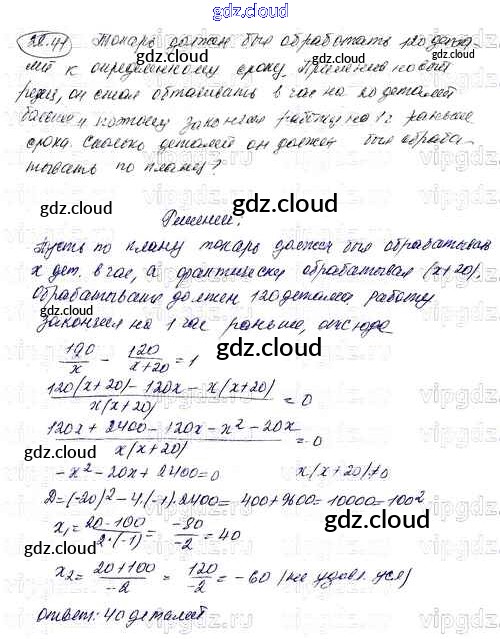 gdz.cloud
32.41 Токарь должен был обработать 120 дета-
лей к определенному сроку. Применив новый
резец, он стал обтачивать в час на 20 деталей
больше и поэтому закончил работу на 1 ч раньше
срока. Сколько деталей он должен был обраба-
тывать по плану?
gdz.cloud
gdz.cloud
Решение:
Пусть по плану токарь должен был обрабатывал
x дет. в час, а фактически обрабатывал (x+20).
gdz.cloud
Обрабатывали должен 120 деталей работу
закончил на 1 час раньше, отсюда
120/x - 120/(x+20) = 1
gdz.cloud
(120(x+20) - 120x - x(x+20))/(x(x+20)) = 0
gdz.cloud
(120x + 2400 - 120x - x² - 20x)/(x(x+20)) = 0
gdz.cloud
-x² - 20x + 2400 = 0 x(x+20)≠0
D = (-20)² - 4·(-1)·2400 = 400 + 9600 = 10000 = 100²
x₁ = (20-100)/(2·(-1)) = -80/-2 = 40
gdz.cloud
x₂ = (20+100)/-2 = 120/-2 = -60 (не удовл. усл)
Ответ: 40 деталей
gdz.cloud
gdz.cloud